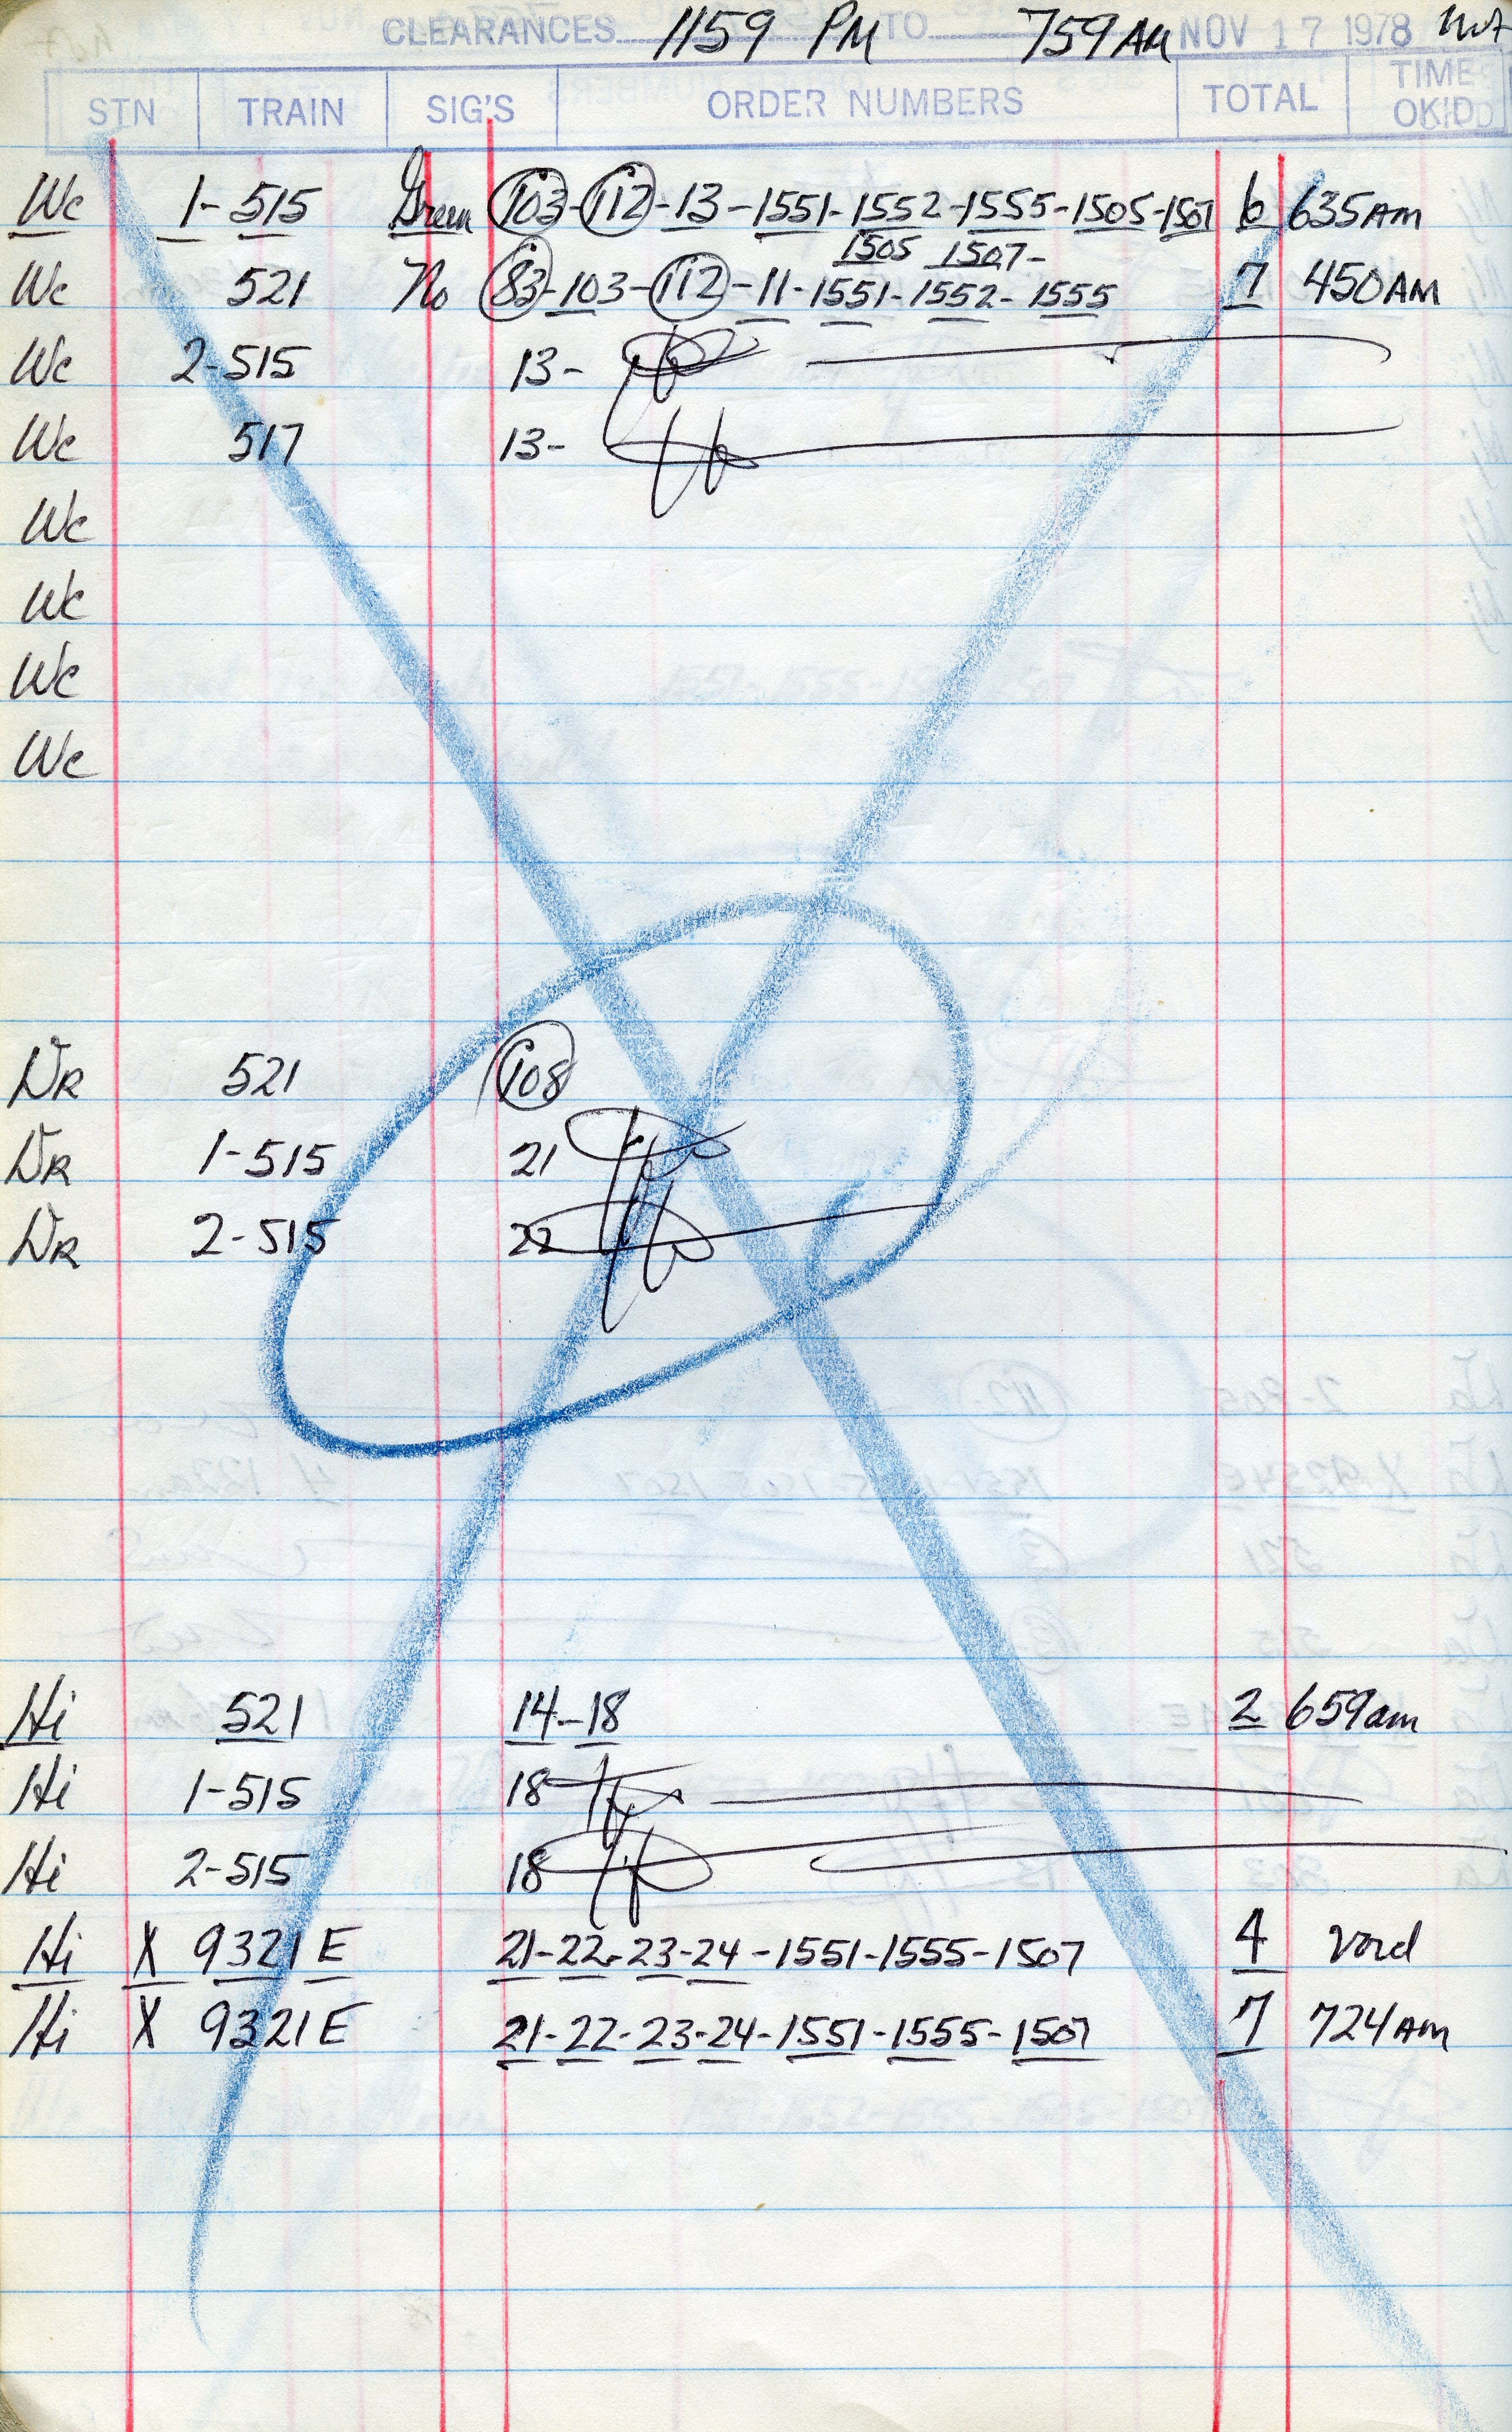 CLEARANCES 1159 PM TO 759 AM NOV 17 1978
STN TRAIN SIG'S ORDER NUMBERS TOTAL TIME OKID
Wc 1-515 Green 103-112-13-1551-1552-1555-1505-1507 6 635AM
1505 1507-
Wc 521 No 83-103-112-11-1551-1552-1555 7 450AM
Wc 2-515 13-
Wc 517 13-
Wc
Wc
Wc
Wc
DR 521 108
DR 1-515 21
DR 2-515 22
Hi 521 14-18 2 659am
Hi 1-515 18
Hi 2-515 18
Hi X 9321 E 21-22-23-24-1551-1555-1507 4 void
Hi X 9321 E 21-22-23-24-1551-1555-1507 7 724AM